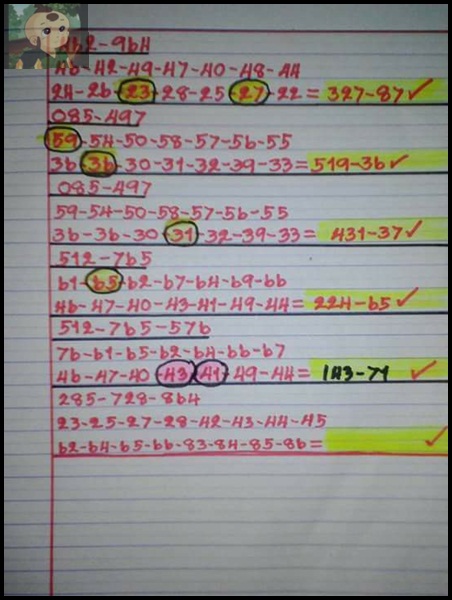 462-964
46-42-49-47-40-48-44
24-26-23-28-25-27-22=327-87✓
085-497
59-54-50-58-57-56-55
36-36-30-31-32-39-33=519-36✓
085-497
59-54-50-58-57-56-55
36-36-30-31-32-39-33=431-37✓
512-765
61-65-62-67-64-69-66
46-47-40-43-41-49-44=224-65✓
512-765-576
76-61-65-62-64-66-67
46-47-40-43-41-49-44=143-71✓
285-728-864
23-25-27-28-42-43-44-45
62-64-65-66-83-84-85-86=✓